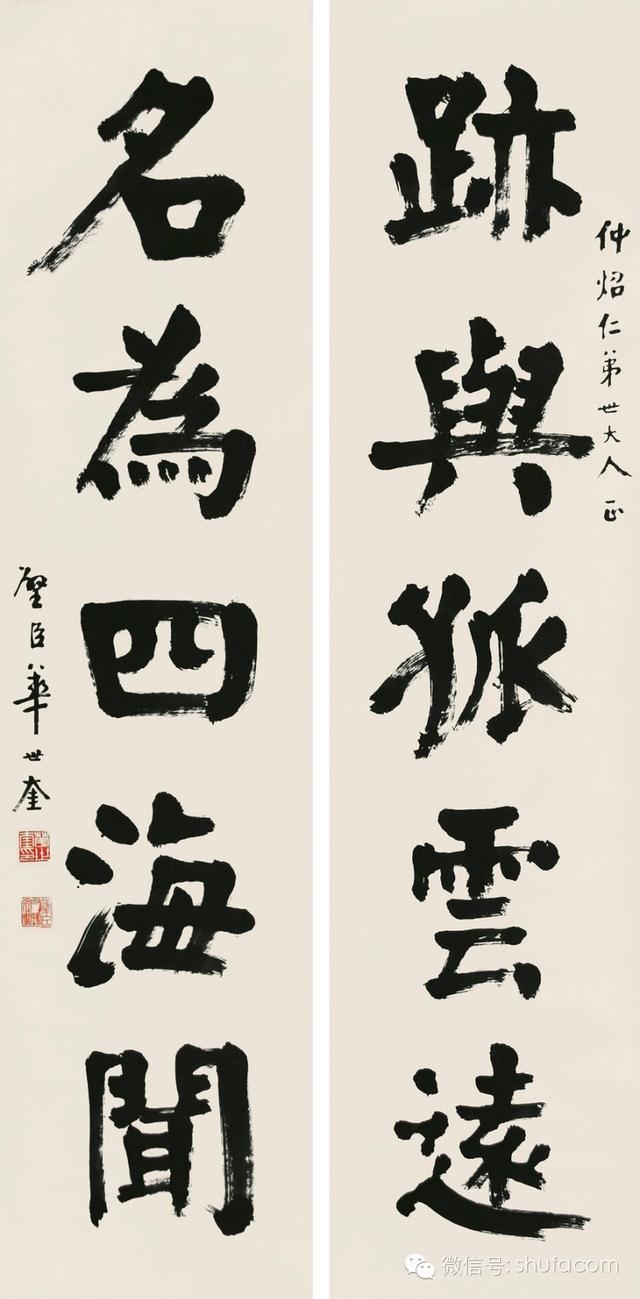 仲炤仁弟世大人正
跡與孤雲遠
名為四海聞
璧臣華世奎
微信号: shufacom